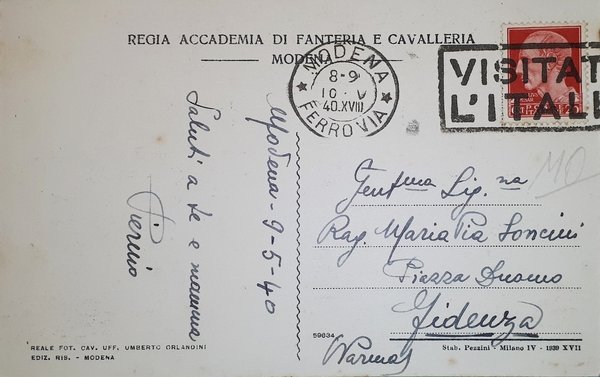 REGIA ACCADEMIA DI FANTERIA E CAVALLERIA
MODENA
MODENA
8-9
10 V
40.XVIII
FERROVIA
VISITAT
L'ITALI
Modena - 9-5-40
Saluti a te e mamma
Pierino
MO
Gent.ma Sig.na
Rag. Maria Pia Soncini
Piazza Duomo
Fidenza
(Parma)
59634
REALE FOT. CAV. UFF. UMBERTO ORLANDINI
EDIZ. RIS. - MODENA
Stab. Pezzini - Milano IV - 1939 XVII